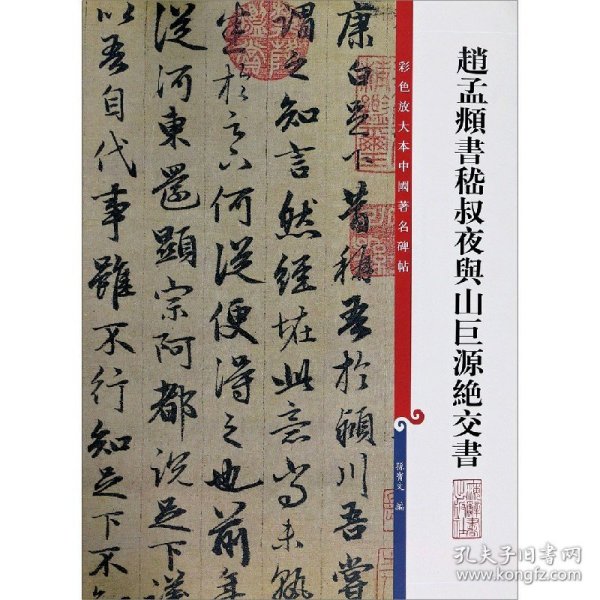 趙孟頫書嵇叔夜與山巨源絶交書
彩色放大本中國著名碑帖
孫寶文 編
康白足下昔稱吾於潁川吾嘗
謂之知言然經怪此意尚未熟
悉於足下何從便得之也前年
從河東還顯宗阿都説足下議
以吾自代事雖不行知足下不
孔夫子旧书网
kongfz.com